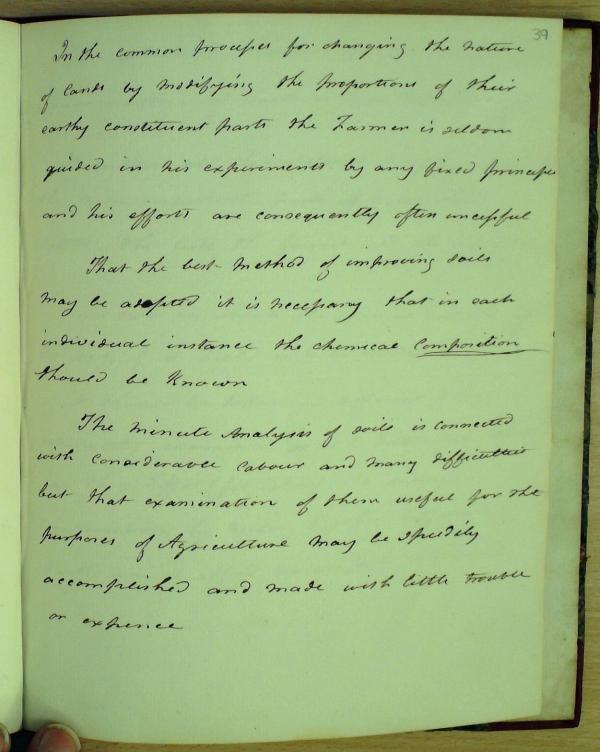 39
In the common process for changing the nature
of lands by modifying the proportions of their
earthy constituent parts the Farmer is seldom
guided in his experiments by any fixed principles
and his efforts are consequently often uncessful
That the best method of improving soils
may be adopted it is necessary that in each
individual instance the chemical Composition
should be Known
The minute Analysis of soils is connected
with considerable labour and many difficulties
but that examination of them useful for the
purposes of Agriculture may be speedily
accomplished and made with little trouble
or expence